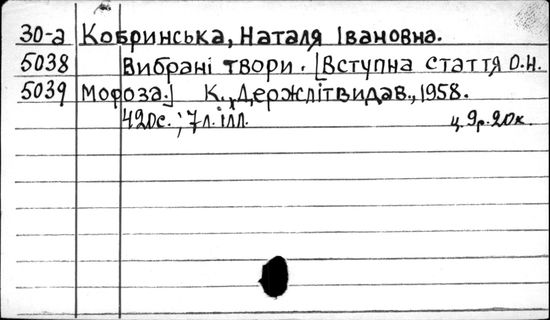 30-а Кобринська, Наталя Івановна.
5038 Вибрані твори. [Вступна стаття О.Н.
5039 Мороза.] К., Держлітвидав., 1958.
420с.; 7л. ілл. ц. 9р. 20к.